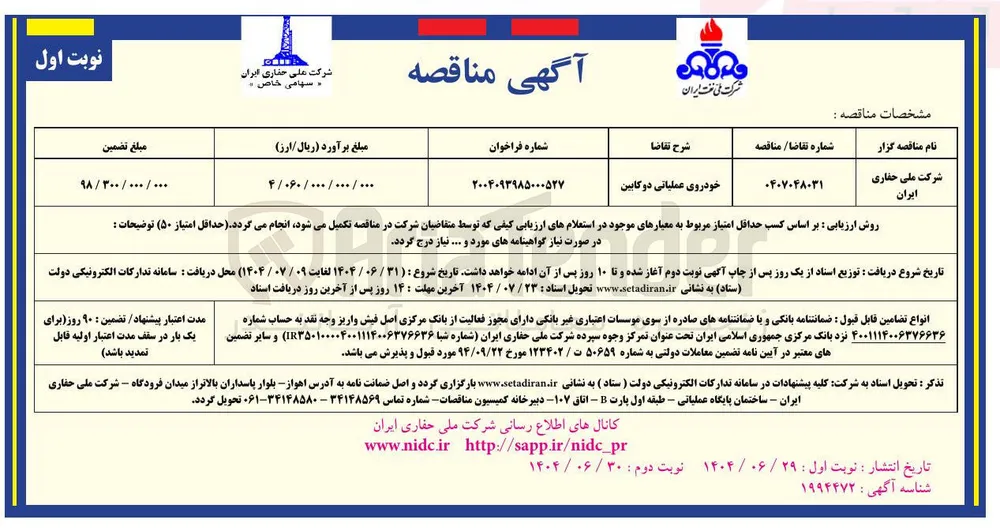 نوبت اول
شرکت ملی حفاری ایران
« سهامی خاص »
آگهی مناقصه
شرکت ملی نفت ایران
مشخصات مناقصه :
نام مناقصه گزار	شماره تقاضا/ مناقصه	شرح تقاضا	شماره فراخوان	مبلغ برآورد (ریال/ارز)	مبلغ تضمین
شرکت ملی حفاری ایران	۰۴۰۷۰۴۸۰۳۱	خودروی عملیاتی دوکابین	۲۰۰۴۰۹۳۹۸۵۰۰۰۵۲۷	۴/۰۶۰/۰۰۰/۰۰۰/۰۰۰	۹۸/۳۰۰/۰۰۰/۰۰۰
روش ارزیابی : بر اساس کسب حداقل امتیاز مربوط به معیارهای موجود در استعلام های ارزیابی کیفی که توسط متقاضیان شرکت در مناقصه تکمیل می شود، انجام می گردد.(حداقل امتیاز ۵۰) توضیحات :
در صورت نیاز گواهینامه های مورد و ... نیاز درج گردد.
تاریخ شروع دریافت : توزیع اسناد از یک روز پس از چاپ آگهی نوبت دوم آغاز شده و تا ۱۰ روز پس از آن ادامه خواهد داشت. تاریخ شروع : ( ۳۱ / ۰۶ / ۱۴۰۴ لغایت ۰۹ / ۰۷ / ۱۴۰۴) محل دریافت : سامانه تدارکات الکترونیکی دولت
(ستاد) به نشانی www.setadiran.ir تحویل اسناد : ۲۳ / ۰۷ / ۱۴۰۴ آخرین مهلت : ۱۴ روز پس از آخرین روز دریافت اسناد
انواع تضامین قابل قبول : ضمانتنامه بانکی و یا ضمانتنامه های صادره از سوی موسسات اعتباری غیر بانکی دارای مجوز فعالیت از بانک مرکزی اصل فیش واریز وجه نقد به حساب شماره
۴۰۰۱۱۱۴۰۰۶۳۷۶۶۳۶ نزد بانک مرکزی جمهوری اسلامی ایران تحت عنوان تمرکز وجوه سپرده شرکت ملی حفاری ایران (شماره شبا IR۳۵۰۱۰۰۰۰۴۰۰۱۱۱۴۰۰۶۳۷۶۶۳۶) و سایر تضمین
های معتبر در آیین نامه تضمین معاملات دولتی به شماره ۵۰۶۵۹ ت / ۱۲۳۴۰۲ مورخ ۹۴/۰۹/۲۲ مورد قبول و پذیرش می باشد.
مدت اعتبار پیشنهاد/ تضمین : ۹۰ روز(برای
یک بار در سقف مدت اعتبار اولیه قابل
تمدید باشد)
تذکر : تحویل اسناد به شرکت: کلیه پیشنهادات در سامانه تدارکات الکترونیکی دولت ( ستاد ) به نشانی www.setadiran.ir بارگزاری گردد و اصل ضمانت نامه به آدرس اهواز- بلوار پاسداران بالاتراز میدان فرودگاه – شرکت ملی حفاری
ایران – ساختمان پایگاه عملیاتی – طبقه اول پارت B – اتاق ۱۰۷- دبیرخانه کمیسیون مناقصات– شماره تماس ۳۴۱۴۸۵۶۹ – ۳۴۱۴۸۵۸۰-۰۶۱ تحویل گردد.
کانال های اطلاع رسانی شرکت ملی حفاری ایران
www.nidc.ir http://sapp.ir/nidc_pr
تاریخ انتشار : نوبت اول : ۲۹ / ۰۶ / ۱۴۰۴ نوبت دوم : ۳۰ / ۰۶ / ۱۴۰۴
شناسه آگهی : ۱۹۹۴۴۷۲
AriaTender